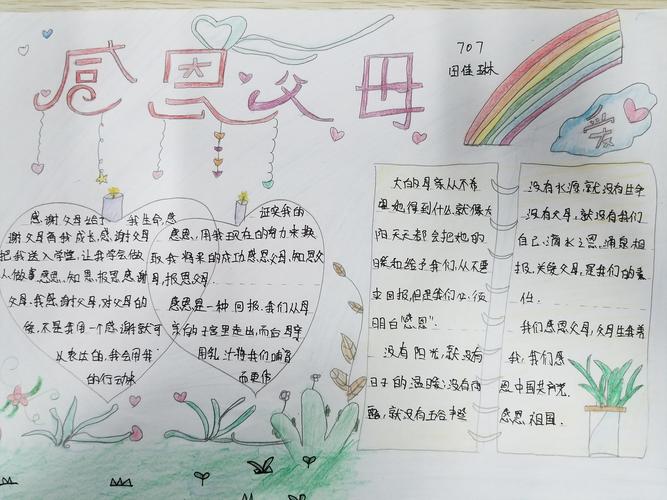 感恩父母
707
田佳琳
爱
感谢父母给于我生命,感
谢父母养我成长,感谢父母
把我送入学堂,让我学会做
人做事感恩,知恩报恩,感谢
父母,我感谢父母,对父母的
爱,不是我用一个感谢就可
以表达的,我会用我
的行动来
证实我的
感恩,用我现在的努力来换
取我将来的成功感恩父母,知恩父
母,报恩父母.
感恩是一种回报.我们从母
亲的子宫里走出,而后母亲
用乳汁将我们哺育
而更伟
大的母亲从不希
望她得到什么.就像太
阳天天都会把她的
温暖给予我们,从不要
求回报,但是我们必须
明白"感恩".
没有阳光,就没有
日子的温暖;没有雨
露,就没有五谷丰登
没有水源,就没有生命
没有父母,就没有我们
自己.滴水之恩,涌泉相
报,关爱父母,是我们的责
任.
我们感恩父母,父母生我养
我,我们感
恩中国共产党.
感恩祖国.